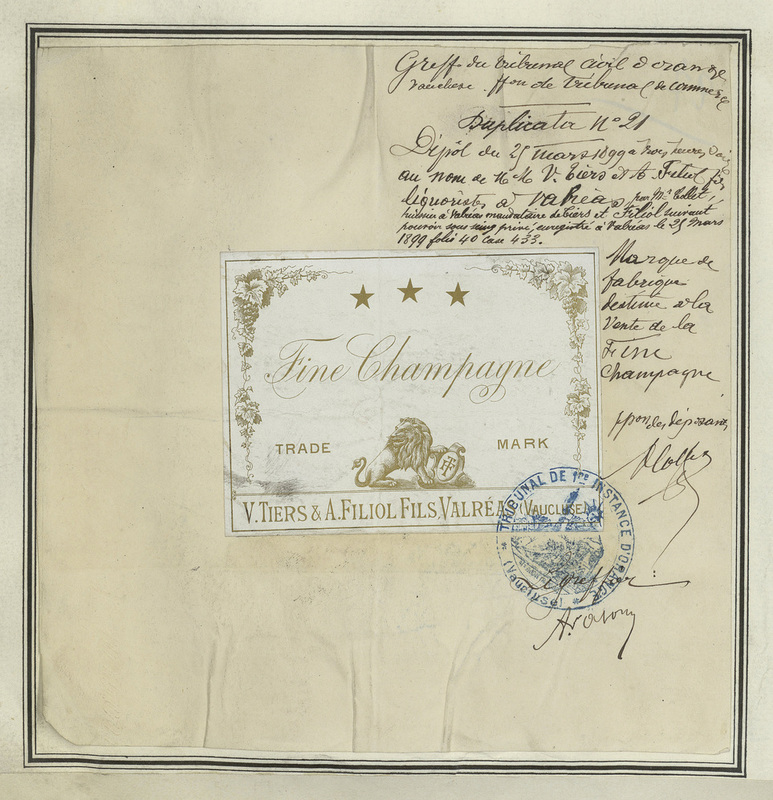 Greffe du Tribunal civil d'orange
Vaucluse ffon de Tribunal de commerce
Duplicata N° 21
Dépôt du 25 mars 1899 à trois heures
au nom de M M V. Tiers et A. Filiol fils
liquoristes à Valréas, par Me Collet,
huissier à Valréas mandataire de Tiers et Filiol suivant
pouvoir sous seing privé, enregistré à Valréas le 25 mars
1899 folio 40 case 433.
Marque de
fabrique
destiné à la
Vente de la
Fine
Champagne
ppon des déposants
Fine Champagne
TRADE MARK
TF
V. TIERS & A. FILIOL FILS, VALRÉAS (VAUCLUSE)
TRIBUNAL DE 1RE INSTANCE D'ORANGE
(Vaucluse)
Le greffier